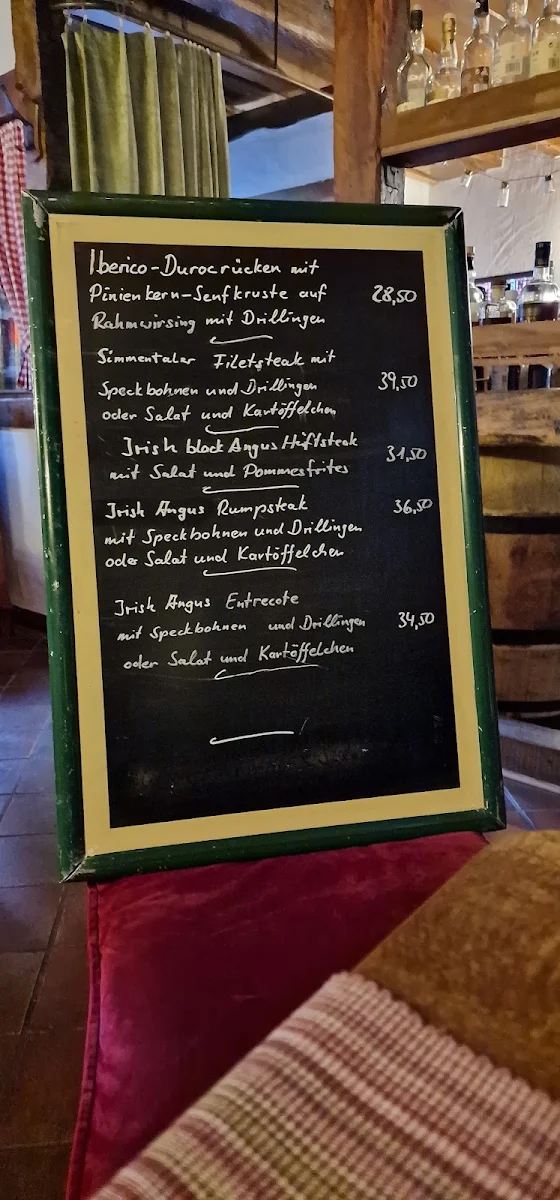 Iberico-Durocrücken mit
Pinienkern-Senfkruste auf 28,50
Rahmwirsing mit Drillingen
Simmentaler Filetsteak mit
Speckbohnen und Drillingen 39,50
oder Salat und Kartöffelchen
Irish black Angus Hüftsteak
mit Salat und Pommesfrites 31,50
Irish Angus Rumpsteak 36,50
mit Speckbohnen und Drillingen
oder Salat und Kartöffelchen
Irish Angus Entrecote
mit Speckbohnen und Drillingen 34,50
oder Salat und Kartöffelchen